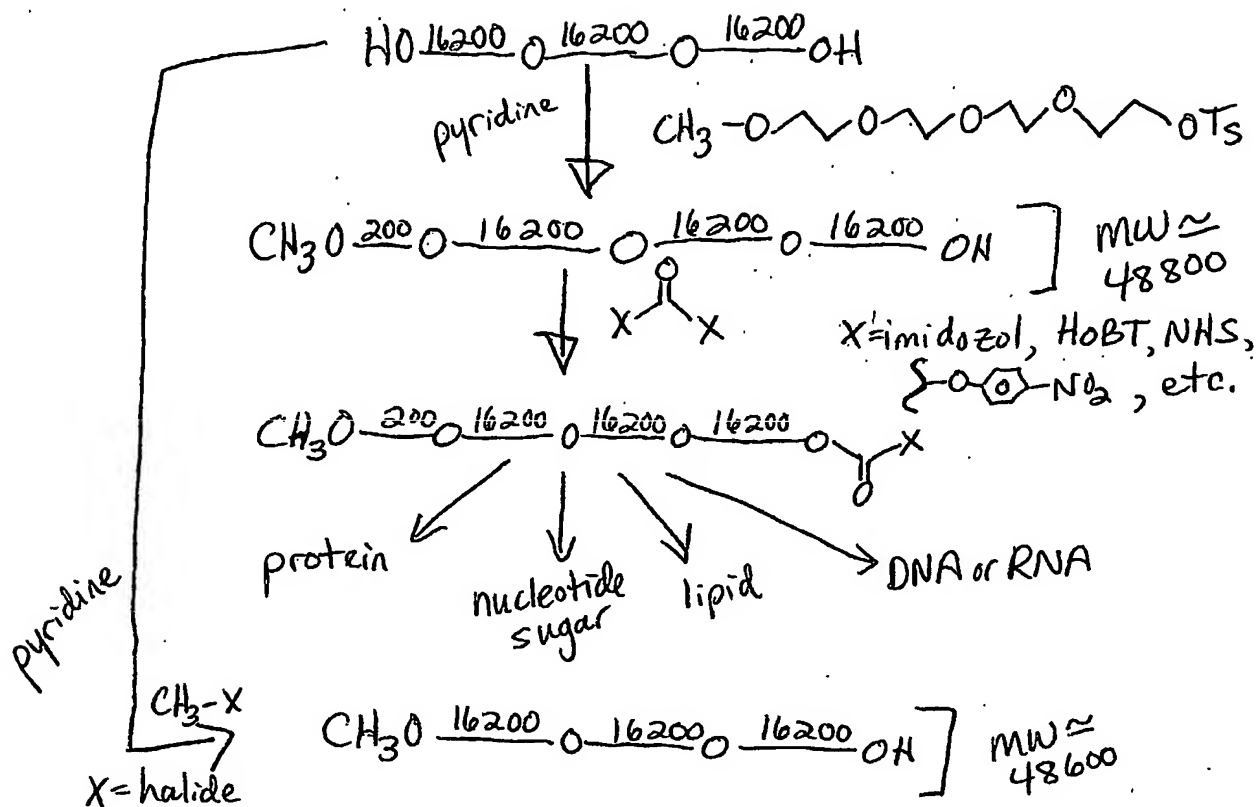 HO 16200 O 16200 O 16200 OH
pyridine
CH3-O O O O OTs
CH3O 200 O 16200 O 16200 O 16200 OH ] MW ≃ 48800
O
X X
X=imidozol, HOBT, NHS,
-O- O -NO2, etc.
CH3O 200 O 16200 O 16200 O 16200 O X
O
protein
nucleotide sugar
lipid
DNA or RNA
pyridine
CH3-X
X=halide
CH3O 16200 O 16200 O 16200 OH ] MW ≃ 48600